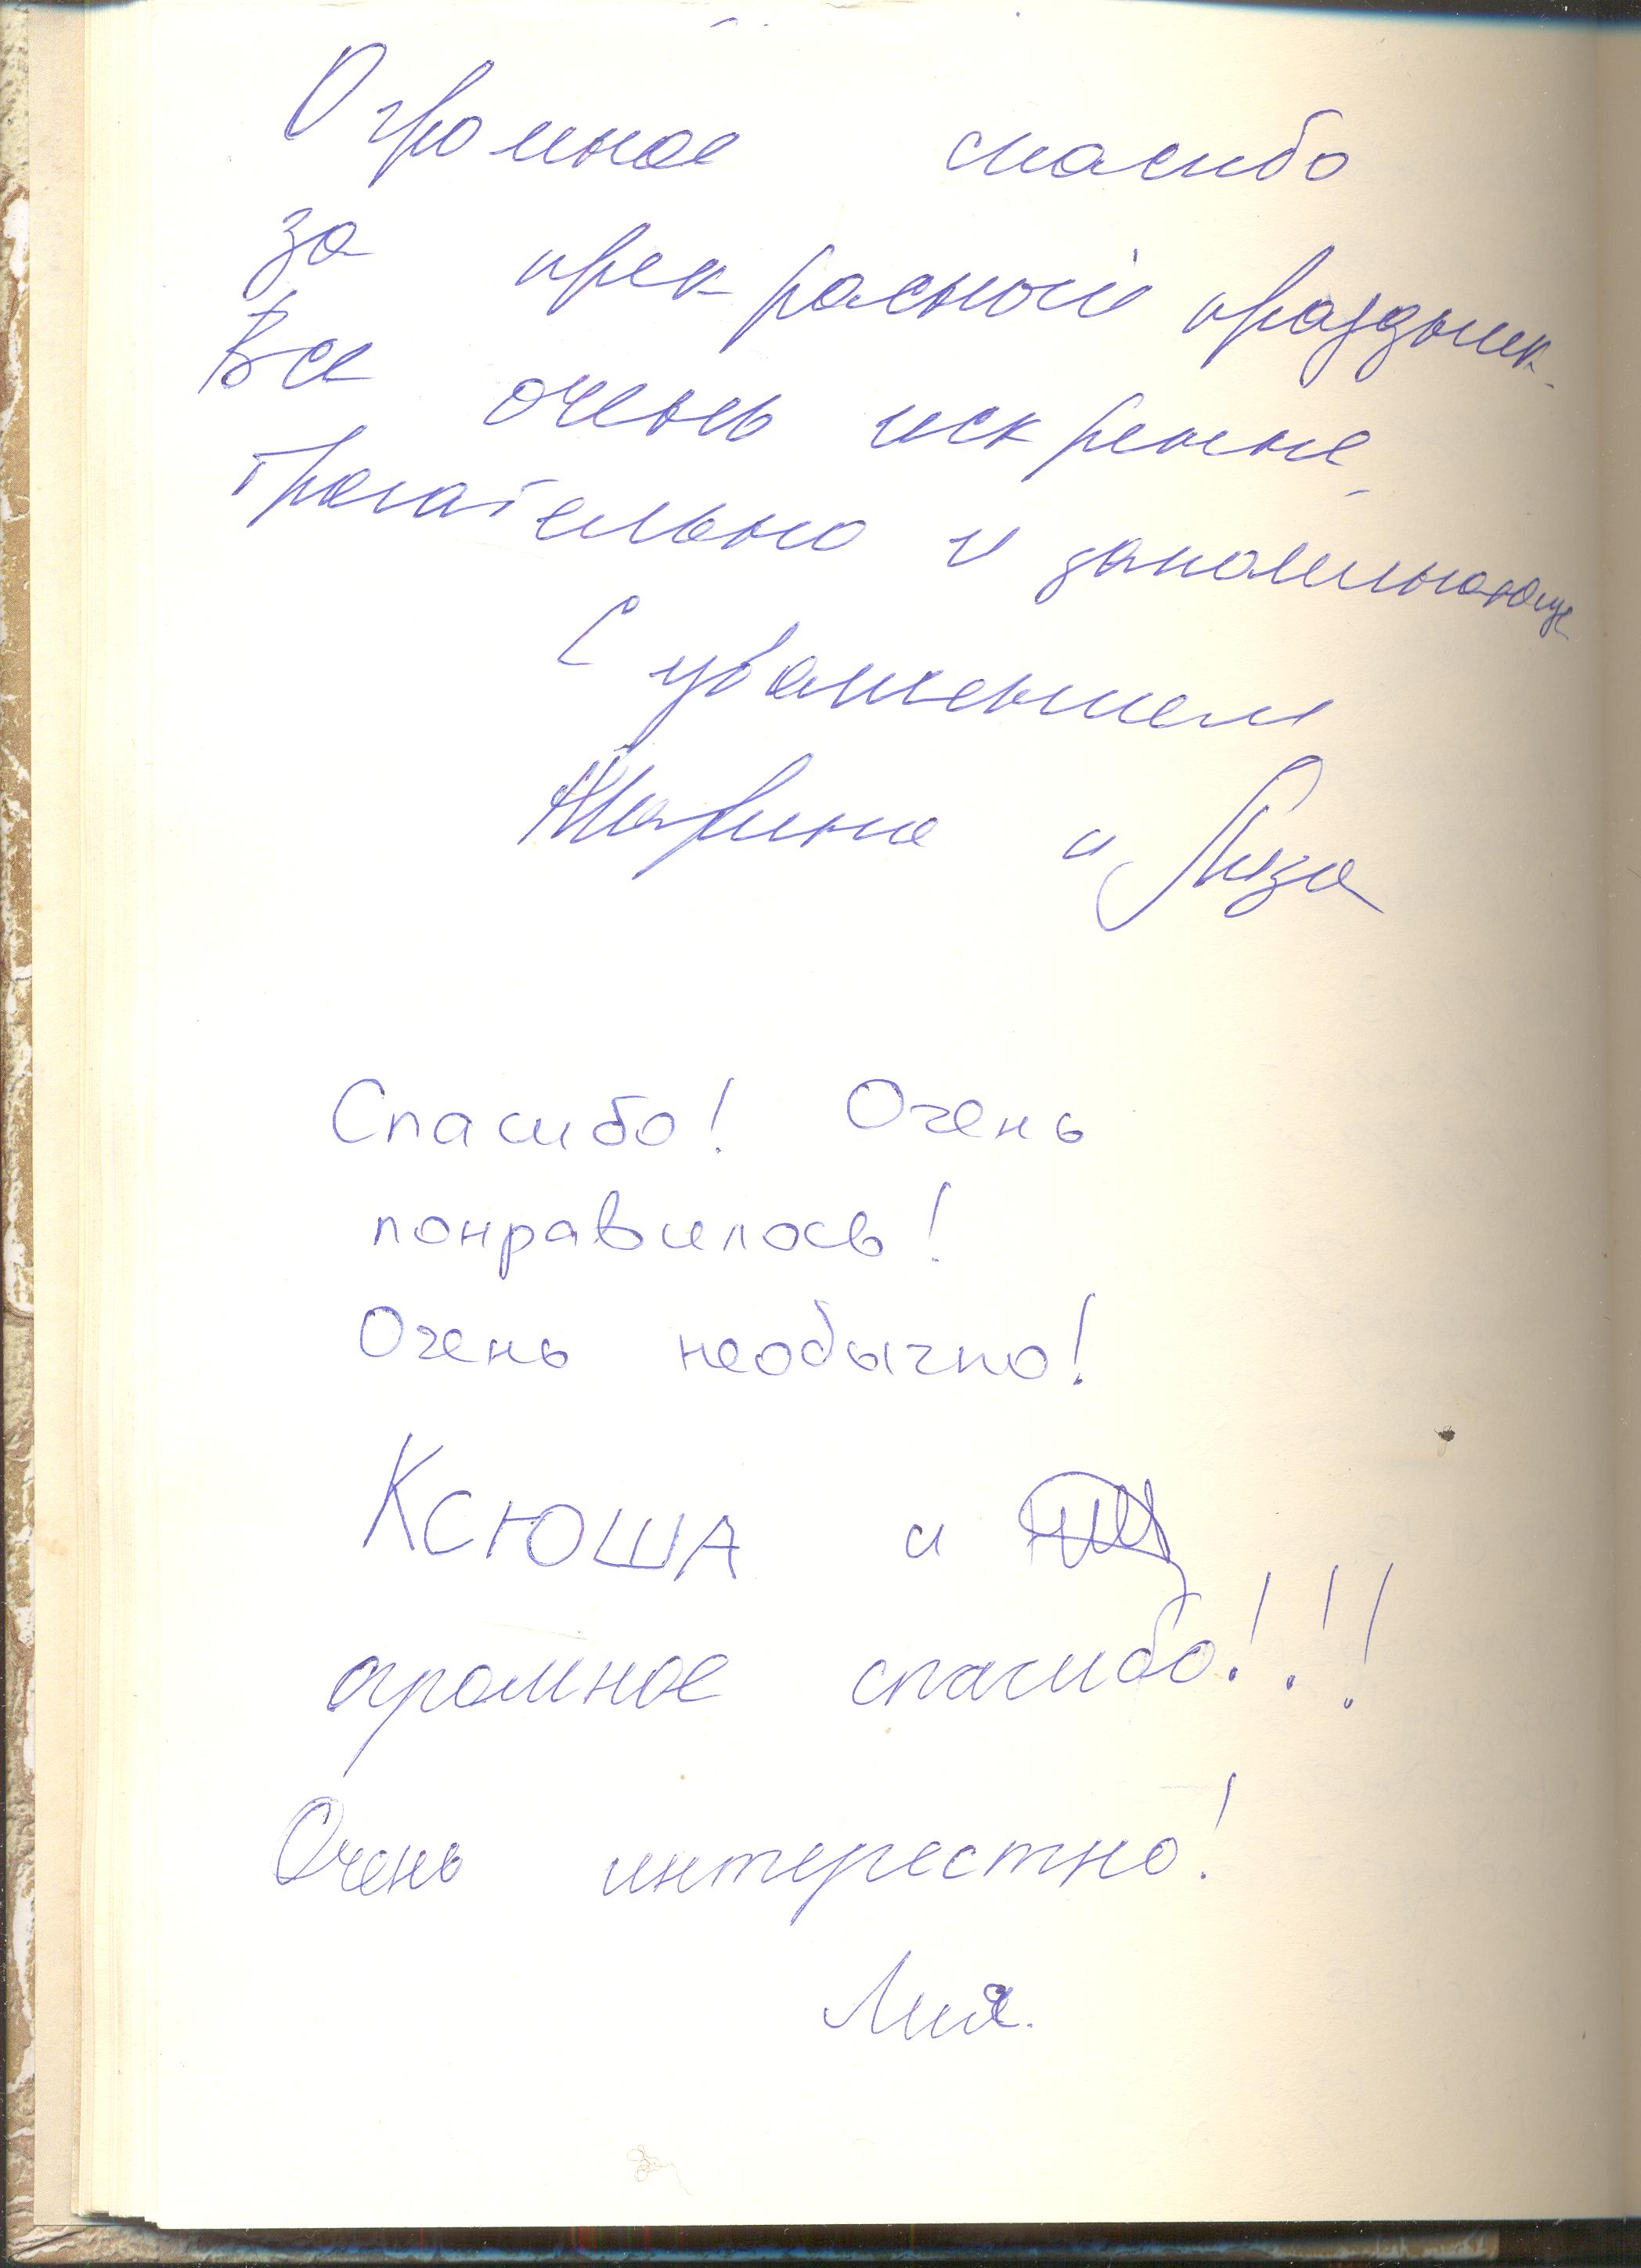 Огромное спасибо
за прекрасный праздник.
Все очень искренне,
трогательно и запоминающе
С уважением
Марина и Лиза
Спасибо! Очень
понравилось!
Очень необычно!
КСЮША и
огромное спасибо!!!
Очень интерестно!
Лия.